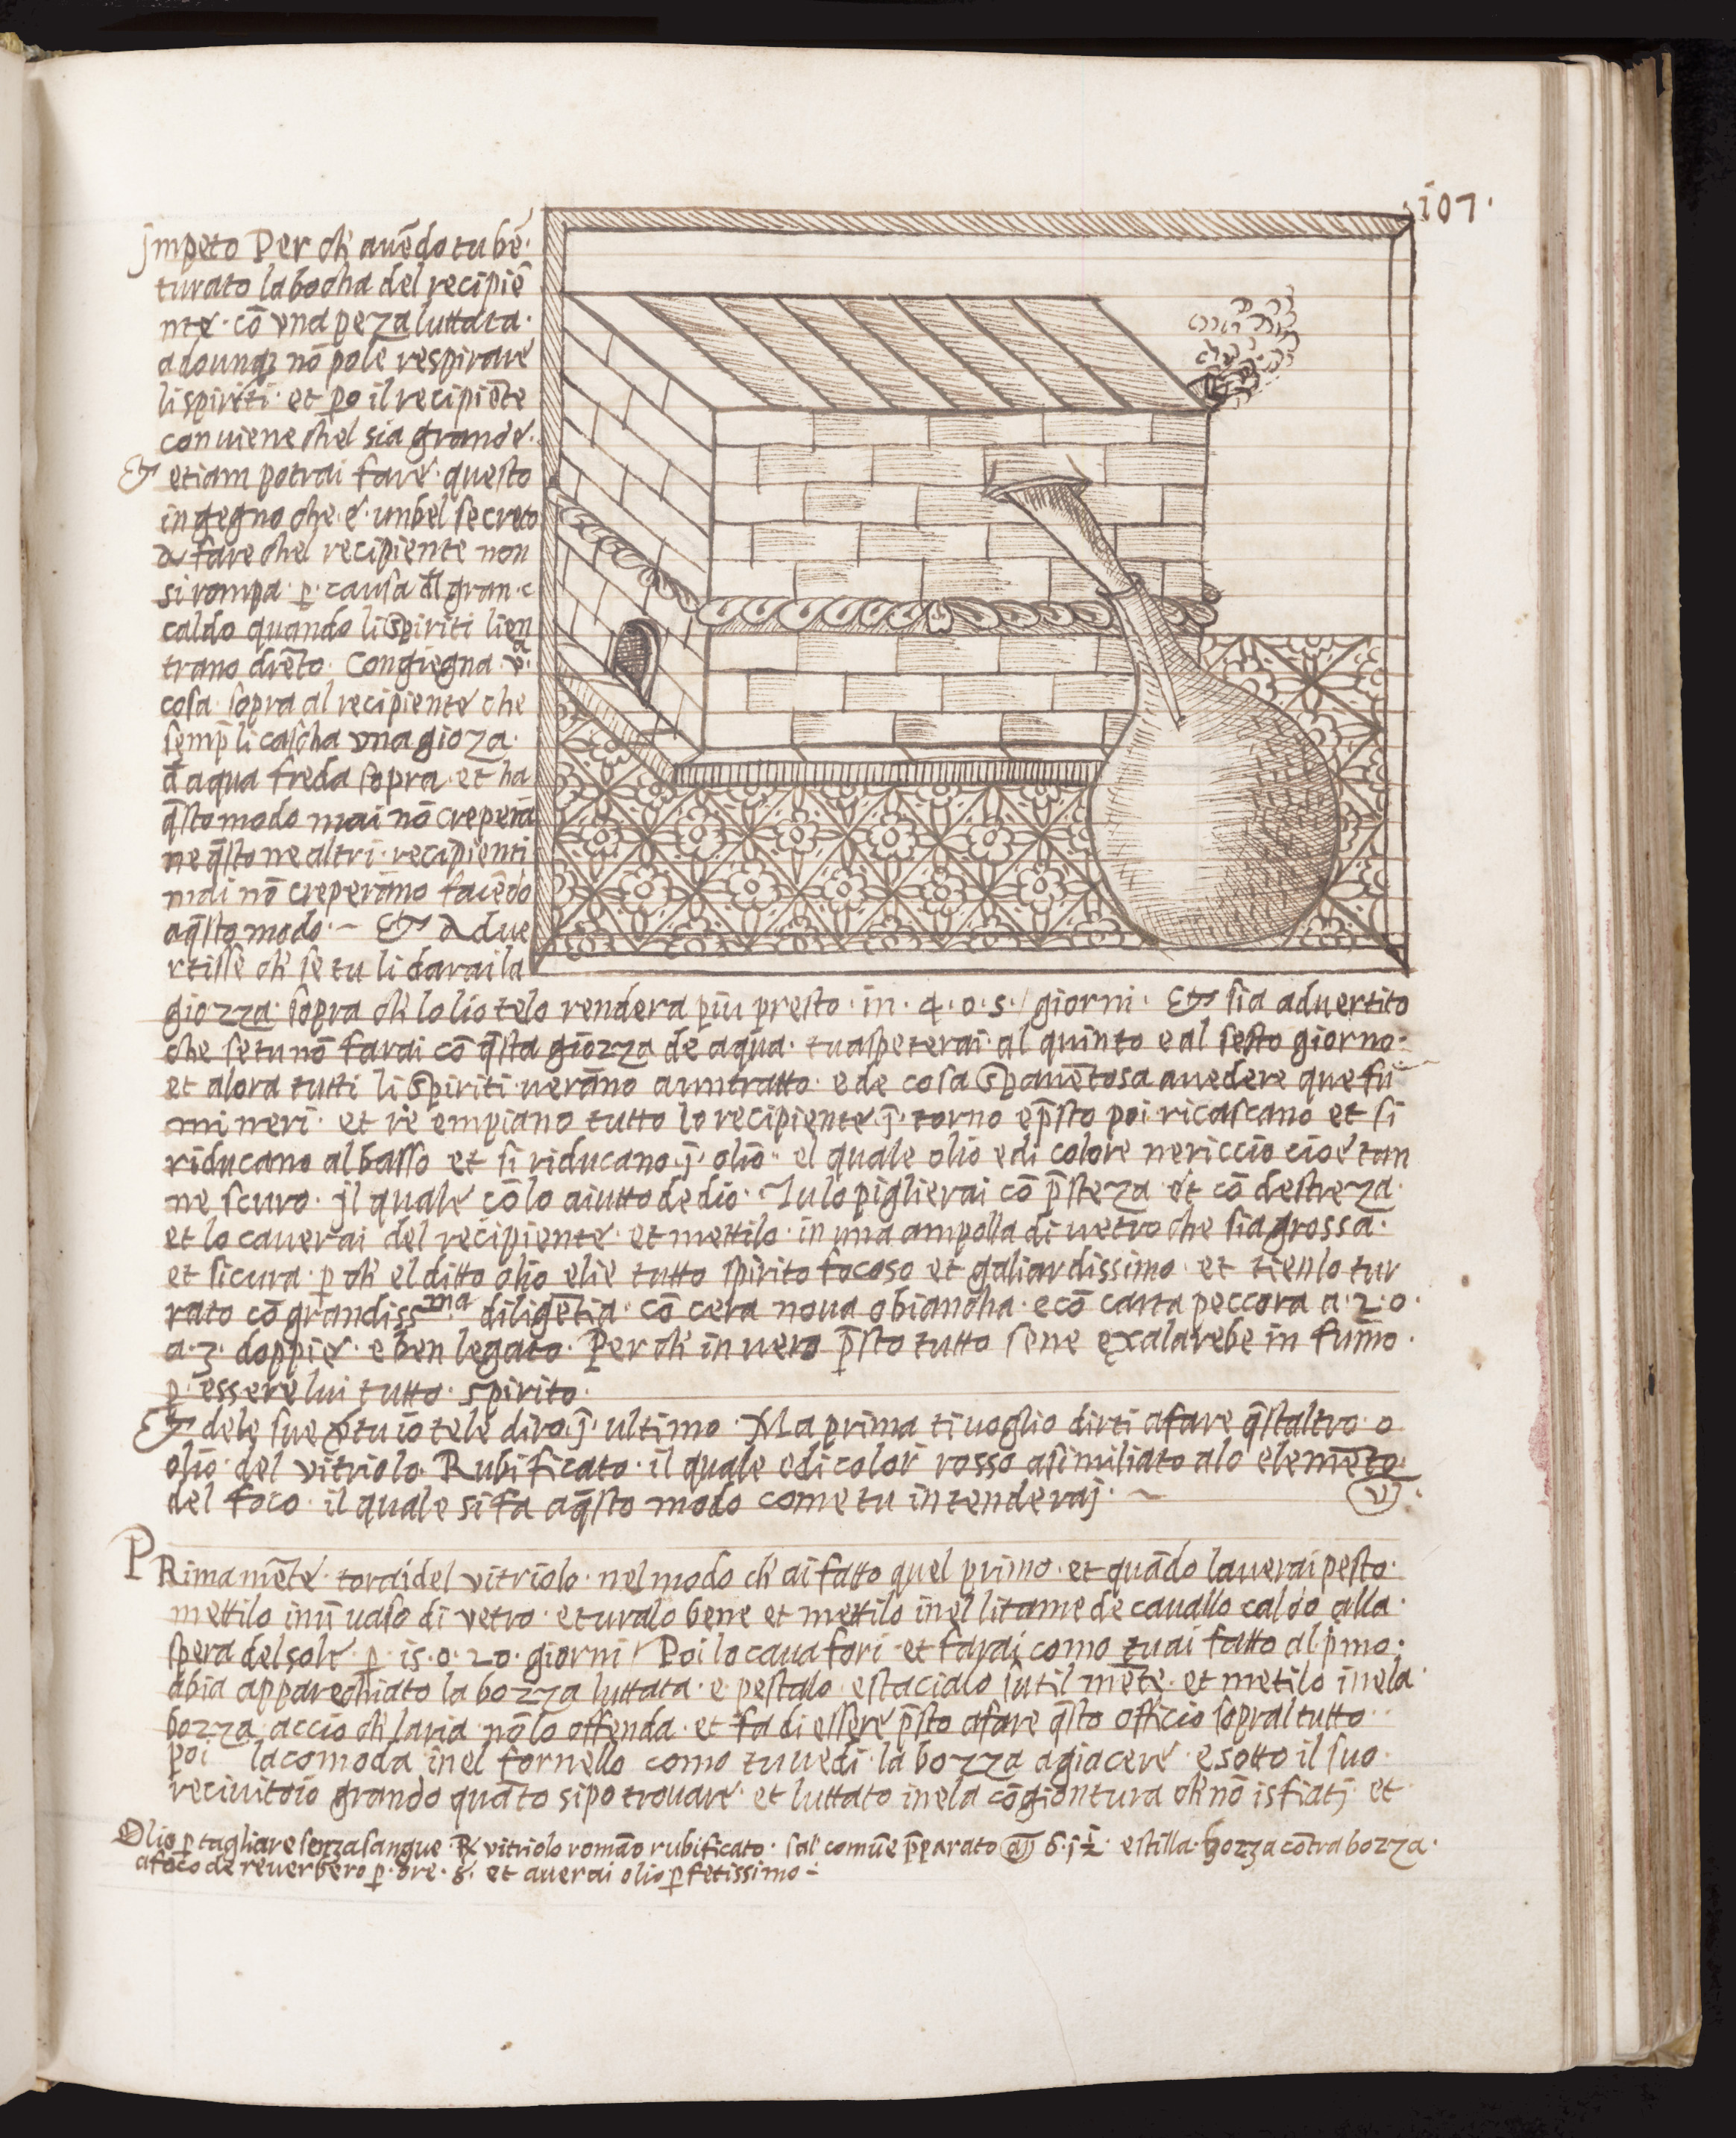 107.
jmpeto Per ch' auēdo tu bē.
turato la bocha del recipiē
nte. cō vna peza luttata.
adounq3 nō pole respirare
li spiriti. et po il recipiēte
conuiene chel sia grande.
Et etiam potrai fare. questo
ingegno che. è. un bel secreto
a fare chel recipiente non
si rompa. p. causa dl gran. c
caldo quando li spiriti li en
trano drēto. Congiegna. va.
cosa. sopra al recipiente che
semp li cascha vna gioza.
d aqua freda sopra. et ha
q̄sto modo mai nō creperā
ne q̄sto ne altri. recipienti
mai nō creperāno facēdo
a q̄sto modo. ~ Et adue
rtisse ch' se tu li darai la
giozza. sopra ch' lo lio telo rendera piu presto. in. 4. o. 5. / giorni. Et sia aduertito
che se tu nō farai cō q̄sta giozza de aqua. tu aspeterai. al quinto e al sesto giorno:
et alora tutti li spiriti uerāno aun tratto. e de cosa spauētosa a uedere que fu
mi neri. et rie empiano tutto lo recipiente. j̄. torno e p̄sto poi ricascano et si
riducano al basso et si riducano. j̄. olio.. el quale olio e di colore nericcio cioè tan
ne scuro. jl quale cō lo aiutto de dio. Tu lo piglierai cō p̄steza et cō destreza.
et lo cauerai del recipiente. et mettilo. in una ampolla di uetro che sia grossa.
et sicura. p ch' el ditto olio elie tutto spirito focoso et galiardissimo et tienlo tur
rato cō grandissma. diligētia. cō cera noua o biancha. e cō carta peccora a. 2. o.
a. 3. doppie. e ben legato. Per ch' in uero p̄sto tutto sene exalarebe in fumo.
p. essere lui tutto. spirito.
Et dele sue vtu io tele diro. j̄. ultimo. Ma prima ti uoglio dirti a fare q̄staltro. o
olio. del vitriolo. Rubificato. il quale e di color rosso asimiliato alo elemēto.
del foco. il quale si fa a q̄sto modo come tu intenderaj. ~ vj.
PRimamēte. torai del vitriolo. nel modo ch' ai fatto quel primo. et quādo lauerai pesto.
mettilo in ū uaso di vetro. e turalo bene et mettilo inel litame de cauallo caldo alla.
spera del sole. p. 15. o. 20. giorni / Poi lo caua fori. et farai como tu ai fatto al p̄mo:
abia apparechiato la bozza luttata. e pestalo. e stacialo sutil mēte. et metilo inela.
bozza. accio ch' laria nō lo offenda. et fa di essere p̄sto a fare q̄sto officio sopral tutto..
poi lacomoda inel fornello como tu uedi. la bozza a giacere. e sotto il suo.
reciuitoio grando quāto si po trouare. et luttato inela cōgiontura ch' nō isfiatj. et
Olio p tagliare senza sangue. ℞ vitriolo romāo rubificato. sal comūe p̄parato ajͣ ℔. j ½. e stilla. bozza cōtra bozza.
a foco de reuerbero p. ore. 8. et auerai olio pfetissimo ÷